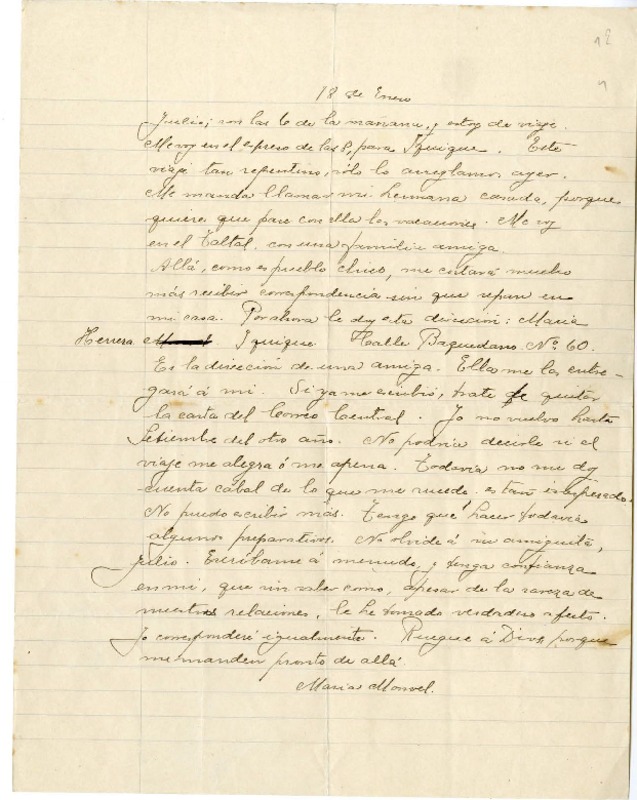 12
18 de Enero
Julio; son las 6 de la mañana, y estoy de viaje.
Me voy en el espreso de las 8, para Iquique. Este
viaje tan repentino, sólo lo arreglamos ayer.
Me manda llamar mi hermana casada, porque
quiere que pase con ella las vacaciones. Me voy
en el Taltal, con una familia amiga.
Allá, como es pueblo chico, me costará mucho
más recibir correspondencia sin que sepan en
mi casa. Por ahora le doy esta dirección: Maria
Herrera Iquique. Calle Baquedano. Nº 60.
Es la dirección de una amiga. Ella me las entre-
gará á mí. Si ya me escribió, trate de quitar
la carta del Correo Central. Yo no vuelvo hasta
Setiembre del otro año. No podría decirle si el
viaje me alegra ó me apena. Todavía no me doy
cuenta cabal de lo que me sucede. es tan inesperado.
No puedo escribir más. Tengo que hacer todavía
algunos preparativos. No olvide á su amiguita,
Julio. Escríbame á menudo, y tenga confianza
en mí, que sin saber como, apesar de la rareza de
nuestras relaciones, le he tomado verdadero afecto.
Yo corresponderé igualmente. Ruegue á Dios, porque
me manden pronto de allá.
Maria Monvel.